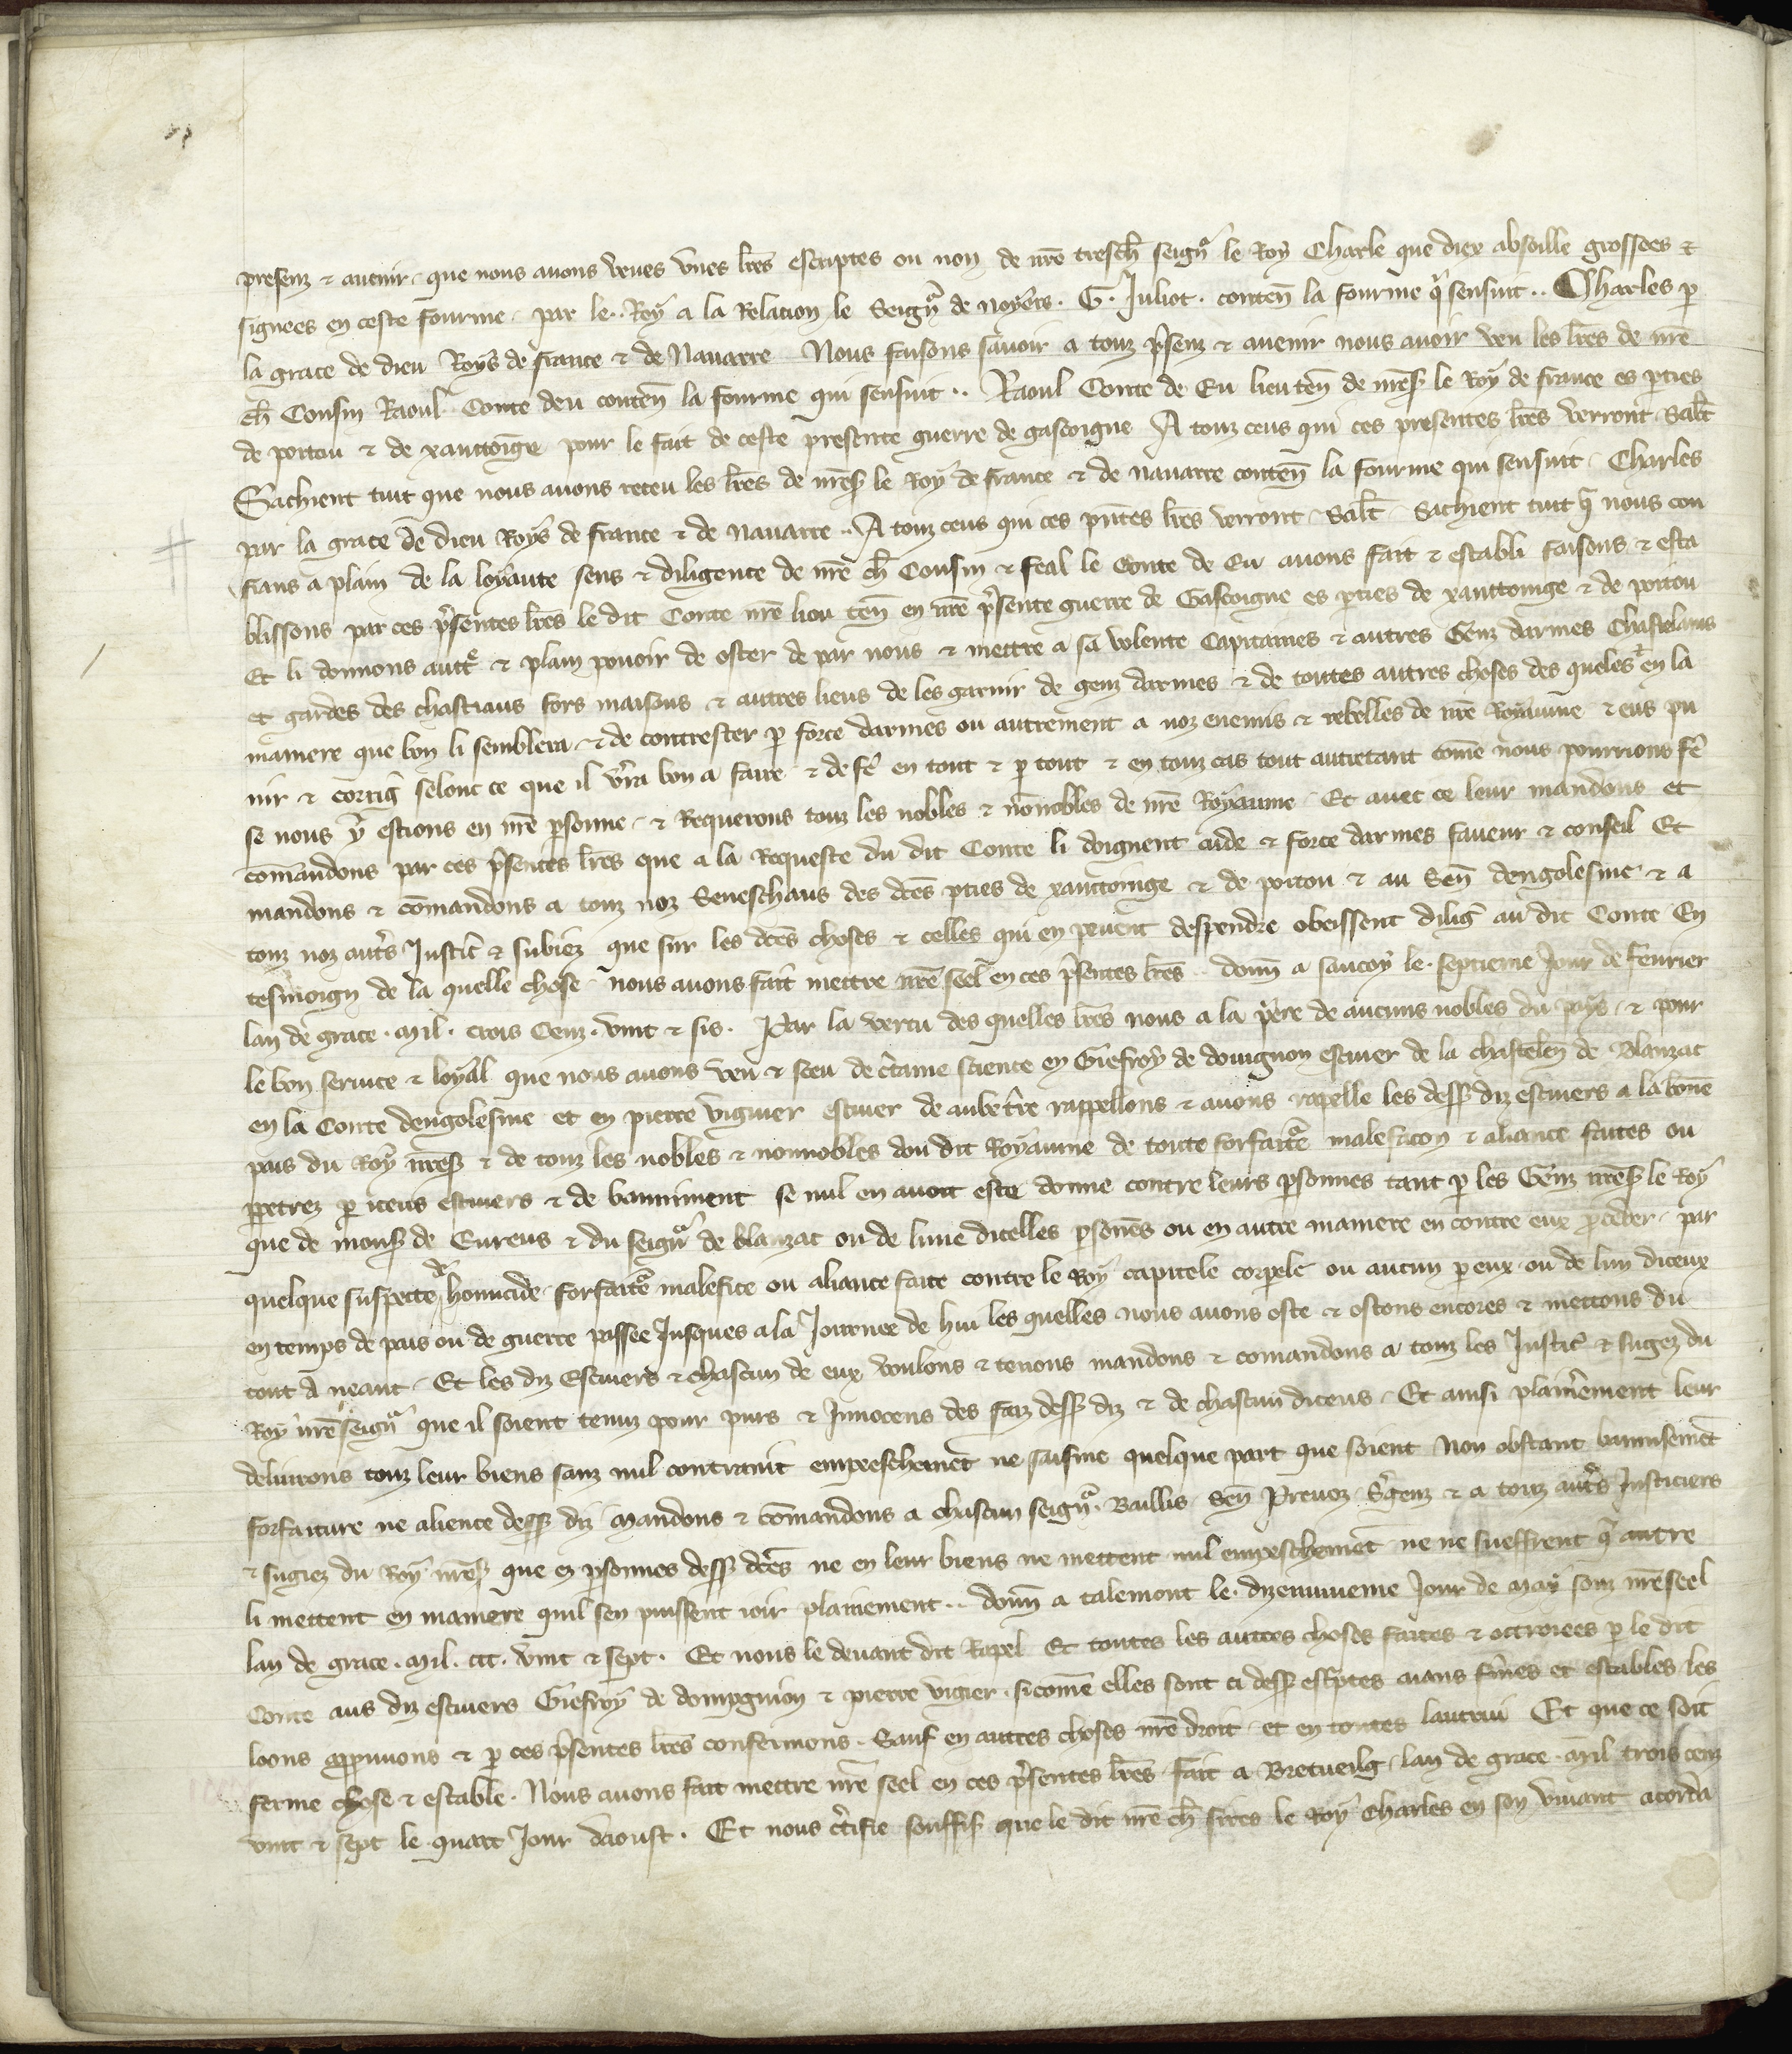 presenz ⁊ auenir que nous auons veues vnes lr̄es escriptes ou non de nr̄e tresch̄ seigñ le Roy Charle que diex absoille grossees ⁊
signees en ceste fourme par le Roy a la Relacion le Seigñ de Noyers . G . Juliot . conteñ la fourme q̄ sensuit .. Charles p̱
la grace de dieu Roys de france ⁊ de Nauarre Nous faisons sauoir a touz p̄senz ⁊ auenir nous auoir veu les lr̄es de nr̄e
ch̄ Cousin Raoul Conte deu conteñ la fourme qui sensuit .. Raoul Conte de Eu lieu teñ de mons̄ le Roy de france es p̱ties
de poitou ⁊ de xanctonge pour le fait de ceste presente guerre de gascoigne A touz ceus qui ces presentes lr̄es verront Sal̄t
Sachient tuit que nous auons receu les lr̄es de mons̄ le Roy de france ⁊ de nauarre conteñ la fourme qui sensuit Charles
par la grace de dieu Roys de france ⁊ de Nauarre .. A touz ceus qui ces pn̄tes lr̄es verront Sal̄t Sachient tuit q̄ nous con
fians a plain de la loyaute sens ⁊ diligence de nr̄e ch̄ Cousin ⁊ feal le Conte de Eu auons fait ⁊ establi faisons ⁊ esta
blissons par ces p̄sentes lr̄es le dit Conte nr̄e lieu teñ en nr̄e p̄sente guerre de Gascoigne es p̱ties de xanctonge ⁊ de poitou
Et li donnons autt̄e ⁊ plain pouoir de oster de par nous ⁊ mettre a sa volente Capitaines ⁊ autres Genz darmes Chastelains
et gardes des chastiaus fors maisons ⁊ autres lieus de les garnir de genz darmes ⁊ de toutes autres choses des queles ⁊ en la
maniere que bon li semblera ⁊ de contrester p̱ force darmes ou autrement a noz enemis ⁊ rebelles de nr̄e Royaume ⁊ eus pu
nir ⁊ corriḡ selonc ce que il v̄ra bon a faire ⁊ de fē en tout ⁊ p̱ tout ⁊ en touz cas tout autretant com̄e nous pourrions fē
se nous y estions en nr̄e p̱sonne ⁊ Requerons touz les nobles ⁊ nōnobles de nr̄e Royaume Et auec ce leur mandons et
com̄andons par ces p̄sentes lr̄es que a la Requeste du dit Conte li doignent aide ⁊ force darmes faueur ⁊ conseil Et
mandons ⁊ com̄andons a touz noz Seneschaus des dc̄es p̱ties de xanctonge ⁊ de poitou ⁊ au Señ dengolesme ⁊ a
touz noz aut̄s Justic̄ ⁊ subiez que sur les dc̄es choses ⁊ celles qui en peuent despendre obeissent diliḡ au dit Conte En
tesmoign de la quelle chose nous auons fait mettre nr̄e seel en ces p̄sentes lr̄es .. donñ a saucoy le septieme Jour de feurier
lan de grace . Mil . trois Cenz . vint ⁊ sis . Par la vertu des quelles lr̄es nous a la p̄ere de aucuns nobles du pays ⁊ pour
le bon seruice ⁊ loyal que nous auons veu ⁊ sceu de c̄taine science en Giefroy de douignon escuier de la chastelen̄ de Blanzac
en la Conte dengolesme et en pierre viguier escuier de aubet̄re rappellons ⁊ auons rapelle les dess̄ diz escuiers a la bon̄e
pais du Roy nr̄es̄ ⁊ de touz les nobles ⁊ nonnobles dou dit Royaume de toute forfait̄e malefacon ⁊ aliance faites ou
p̱petrez p̱ iceus escuiers ⁊ de banniment se nul en auoit este donne contre leurs p̱sonnes tant p̱ les Genz nr̄es̄ le Roy
que de mons̄ de Eureus ⁊ du seigñ de blanzac ou de lune dicelles p̱sonēs ou en autre maniere en contre eux p̱ceder par
quelque suspecte de homicide forfait̄e malefice ou aliance faite contre le Roy capitele corpele ou aucun p̱ eux ou de lun diceux
en temps de pais ou de guerre passee Jusques a la Journee de hui les quelles nous auons oste ⁊ ostons encores ⁊ mettons du
tout a neant Et les diz Escuiers ⁊ chascun de eux voulons ⁊ tenons mandons ⁊ comandons a touz les Justic̄ ⁊ sugez du
Roy nr̄e seigñ que il soient tenuz pour purs ⁊ Innocens des faiz dess̄ diz ⁊ de chascun diceus Et ainsi plain̄ement leur
deliurons touz leur biens sanz nul contraint empeeschem̄et ne saisine quelque part que soient Non obstant bannisem̄et
forfaiture ne alience dess̄ diz Mandons ⁊ com̄andons a chascun seigñ . Baillis Señ Preuoz S̄genz ⁊ a touz aut̄s Justiciers
⁊ sugiez du Roy nr̄es̄ que es p̱sonnes dess̄ dc̄es ne en leur biens ne mettent nul empeschem̄et ne ne sueffrent q̄ autre
li mettent en maniere quil sen puissent ioir plainement .. donñ a talemont le dizenuuieme Jour de May souz nr̄e seel
lan de grace . Mil . ccc . vint ⁊ sept . Et nous le deuant dit Rapel Et toutes les autres choses faites ⁊ ottroiees p̱ le dit
Conte aus diz escuiers Giefroy de dompgnion ⁊ pierre vigier sicom̄e elles sont ci dess̄ esc̄ptes aians f̄mes et estables les
loons app̱uuons ⁊ p̱ ces p̄sentes lr̄es confermons . Sauf en autres choses nr̄e droit et en toutes lautrui Et que ce soit
ferme chose ⁊ estable . Nous auons fait mettre nr̄e seel en ces p̄sentes lr̄es fait a Bretueilg lan de grace . Mil trois cenz
vint ⁊ sept le quart Jour daoust . Et nous c̄tifie souffis̄ que le dit nr̄e ch̄ sires le Roy Charles en son viuant acorda